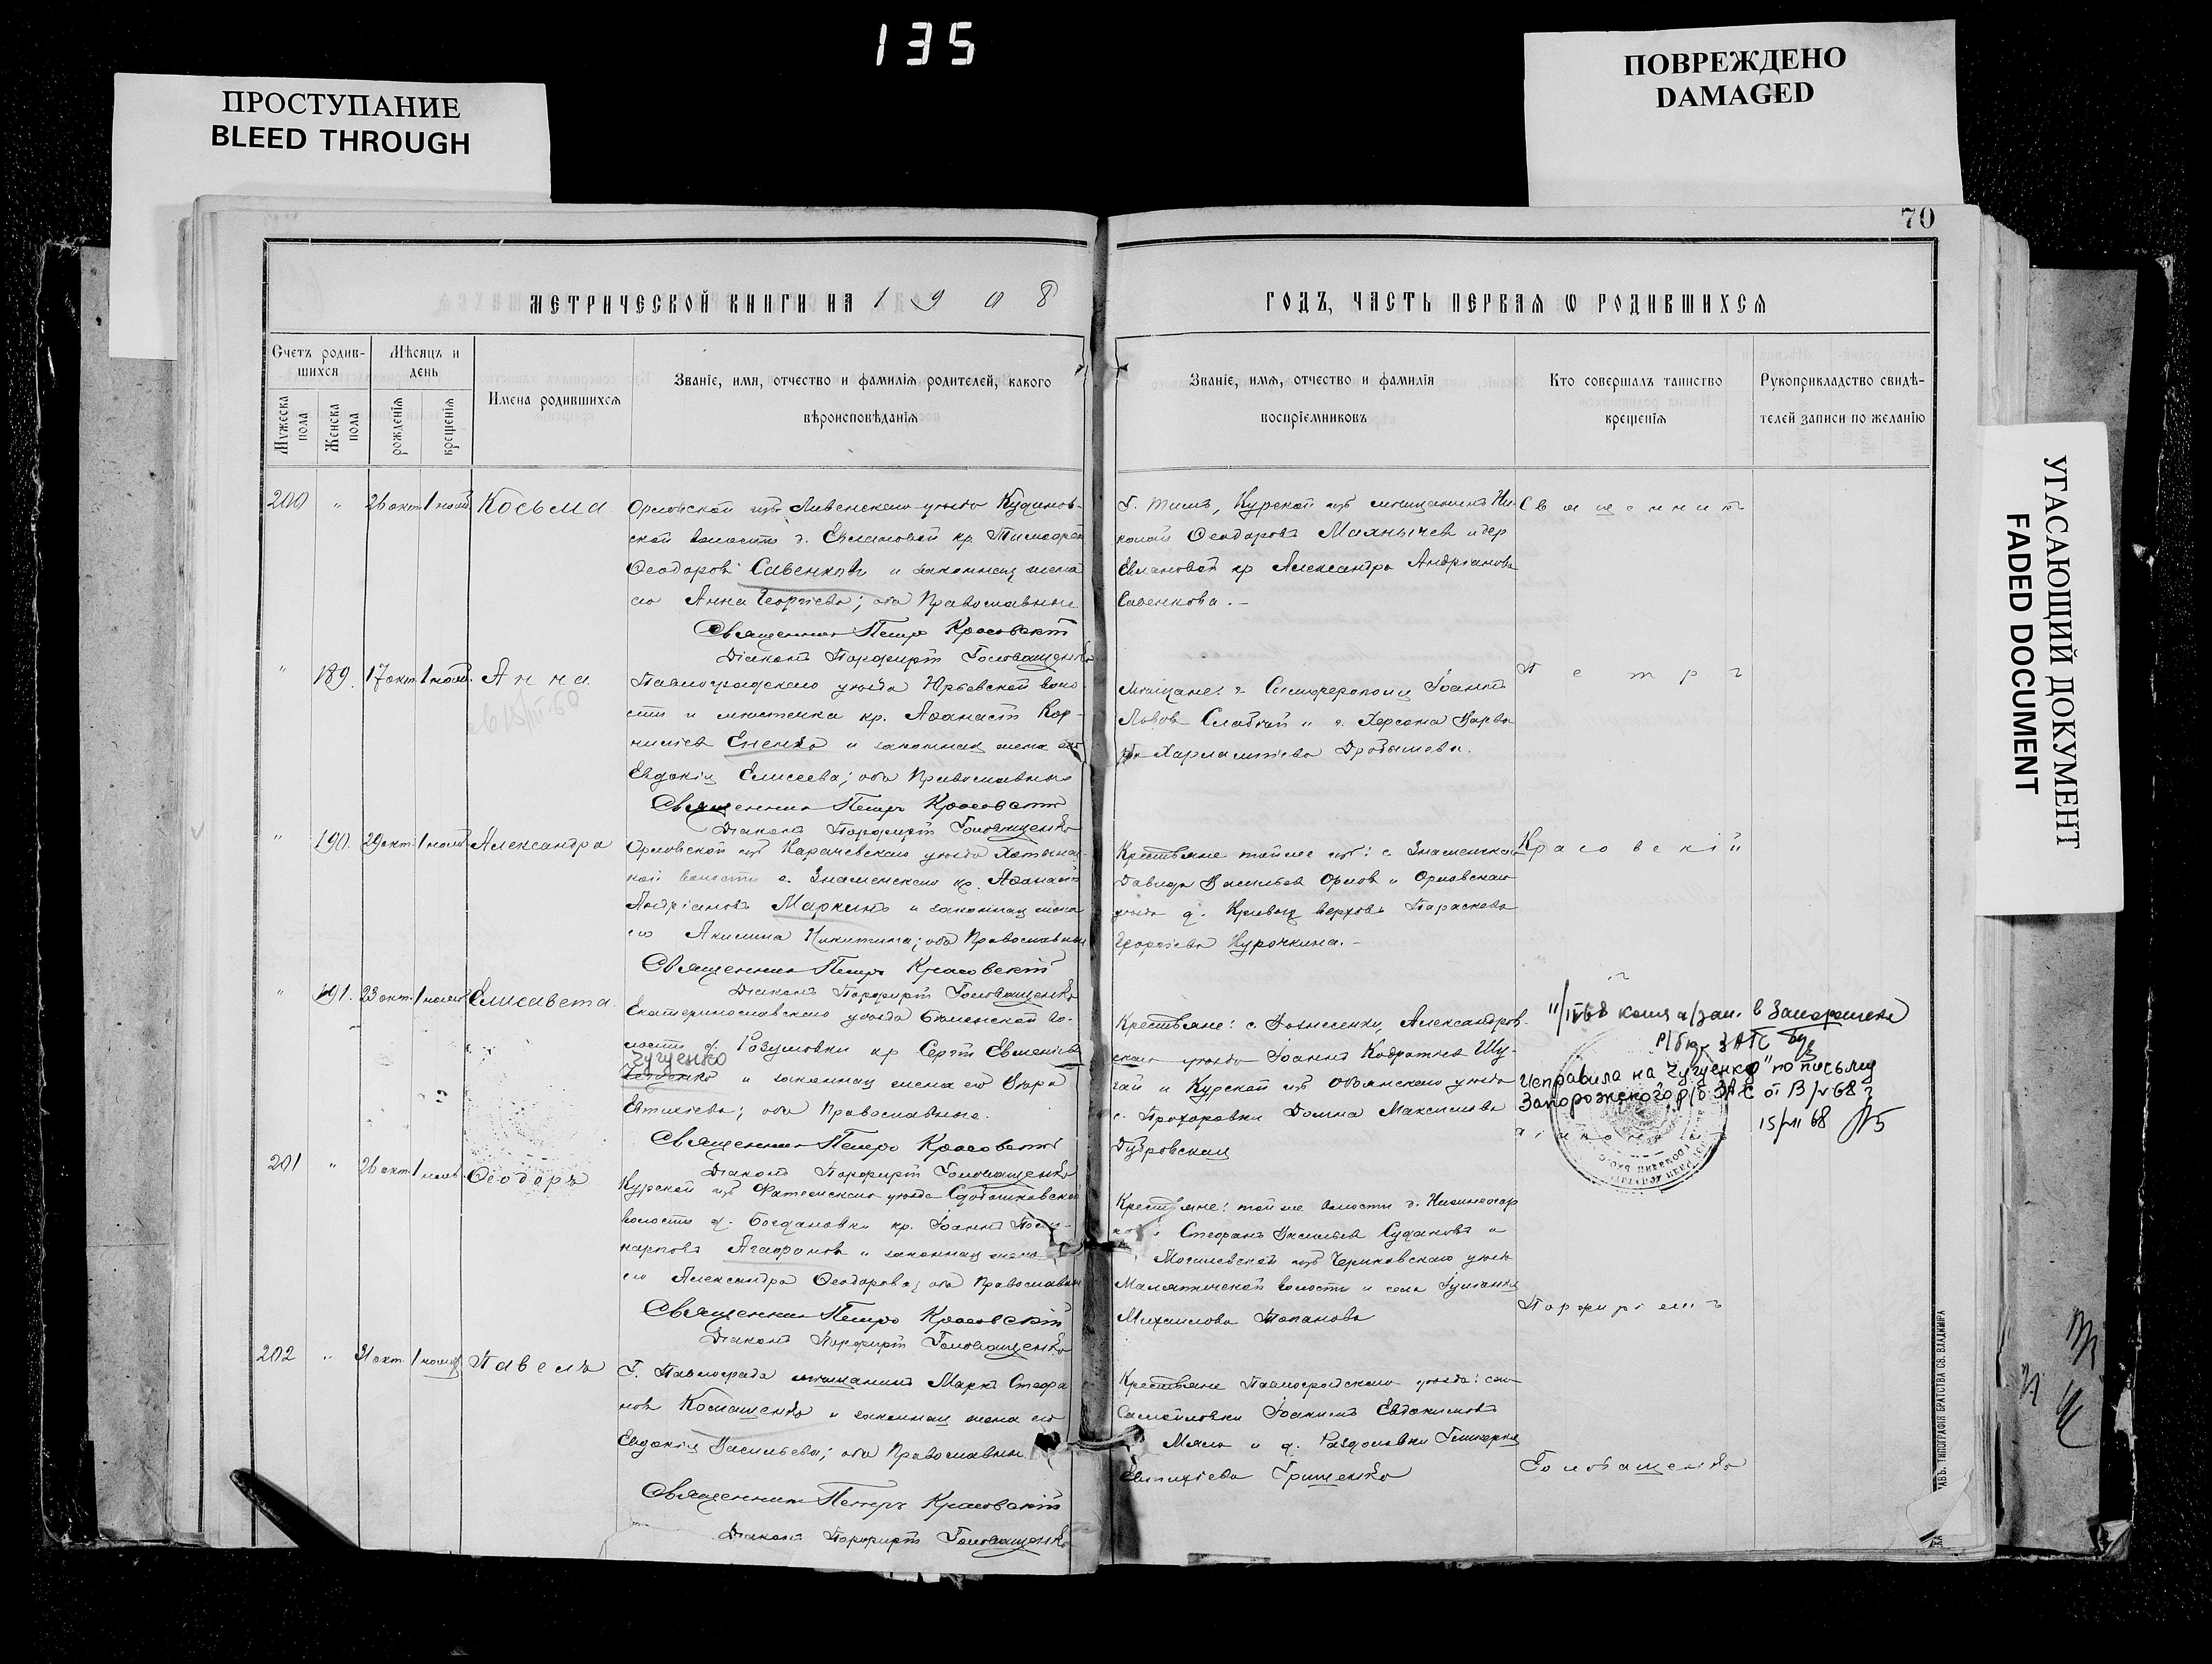 135
ПРОСТУПАНИЕ
BLEED THROUGH
ПОВРЕЖДЕНО
DAMAGED
70
УГАСАЮЩИЙ ДОКУМЕНТ
FADED DOCUMENT
МЕТРИЧЕСКОЙ КНИГИ НА 1908
ГОДЪ, ЧАСТЬ ПЕРВАЯ Ѡ РОДИВШИХСЯ
Счетъ родив-
шихся
Мужеска пола
Женска пола
Мѣсяцъ и
день
рожденія
крещенія
Имена родившихся
Званіе, имя, отчество и фамилія родителей, какого
вѣроисповѣданія
Званіе, имя, отчество и фамилія
воспріемниковъ
Кто совершалъ таинство
крещенія
Рукоприкладство свидѣ-
телей записи по желанію
200 " 26 окт. 1 нояб. Косьма
Орловской губ Ливенскаго уѣзда Кудинов-
ской волости д. Евлановой кр. Тимофей
Ѳеодоровъ Савенковъ и законная жена
его Анна Георгіева; оба Православные
Священникъ Петръ Красовскій
Діаконъ Порфирій Головащенко
Г. Тима, Курской губ мѣщанинъ Ни-
колай Ѳеодоровъ Махнычев и дер
Евлановой кр Александра Андріанова
Савенкова.-
Священникъ
" 189. 17 окт. 1 нояб. Анна
Павлоградскаго уѣзда Юрьевской воло-
сти и мѣстечка кр. Аѳанасій Кор-
ниліевЕненко и законная жена его
Евдокія Елисеева; оба Православные
Священникъ Петръ Красовскій
Діаконъ Порфирій Головащенко
Мѣщане: г. Симферополя Іоаннъ
Львов Слабкій и г. Херсона Варва
ра Харлампіева Дробышева.
Петръ
" 190. 29 окт. 1 нояб. Александра
Орловской губ Карачевскаго уѣзда
кой волости с. Знаменскаго кр. Аѳанасій
Андріановъ Маркинъ и законная жена
его Акилина Никитина; оба Православные
Священникъ Петръ Красовскій
Діаконъ Порфирій Головащенко
Крестьяне той же губ: с. Знаменскаго
Давидъ Васильев Орлов и Орловскаго
уѣзда д. Кривыя верхов Параскева
Георгіева Курочкина.-
Красовскій
" 191. 23 окт. 1 нояб. Елисавета
Екатеринославскаго уѣзда во-
лости д. Розумовки кр Сергій Евменіев
Чугуенко
и законная жена его
оба Православные.
Священникъ Петръ Красовскій
Діаконъ Порфирій Головащенко
Крестьяне: с. Вознесенки, Александров-
скаго уѣзда Іоаннъ Кодратьев Шу-
гай и Курской губ Обоянскаго уѣзда
с. Прохоровки Домна Максимова
Дубровская
копия а/зап. в Запорожское
ЗАГС
Исправила на "Чугуенко" по письму
Запорожского р/б ЗАГС
діаконъ
201 " 26 окт. 1 нояб. Ѳеодоръ
Курской губ Фатежскаго уѣзда
волости д. Богдановки кр. Іоаннъ Поли-
карповъ Агафонов и законная жена
его Александра Ѳеодорова; оба Православные
Священникъ Петръ Красовскій
Діаконъ Порфирій Головащенко
Крестьяне: той же волости д.
Стефанъ Васильев Судаковъ и
Могилевской губ Чериковскаго уѣзда
Малятичской волости и села
Михаилова
Порфирій
202 " 31 окт. 1 нояб. Павелъ
Г. Павлограда мѣщанинъ Маркъ Стефа
нов и законная жена его
Евдокія Васильева; оба Православные
Священникъ Петръ Красовскій
Діаконъ Порфирій Головащенко
Крестьяне Павлоградскаго уѣзда: села
Самойловки Іоакимъ Евдокимовъ
и д. Раздоловки Гликерія
Евтихіева Грищенко
Головащенко
ТИПОГРАФІЯ БРАТСТВА СВ. ВЛАДИМІРА